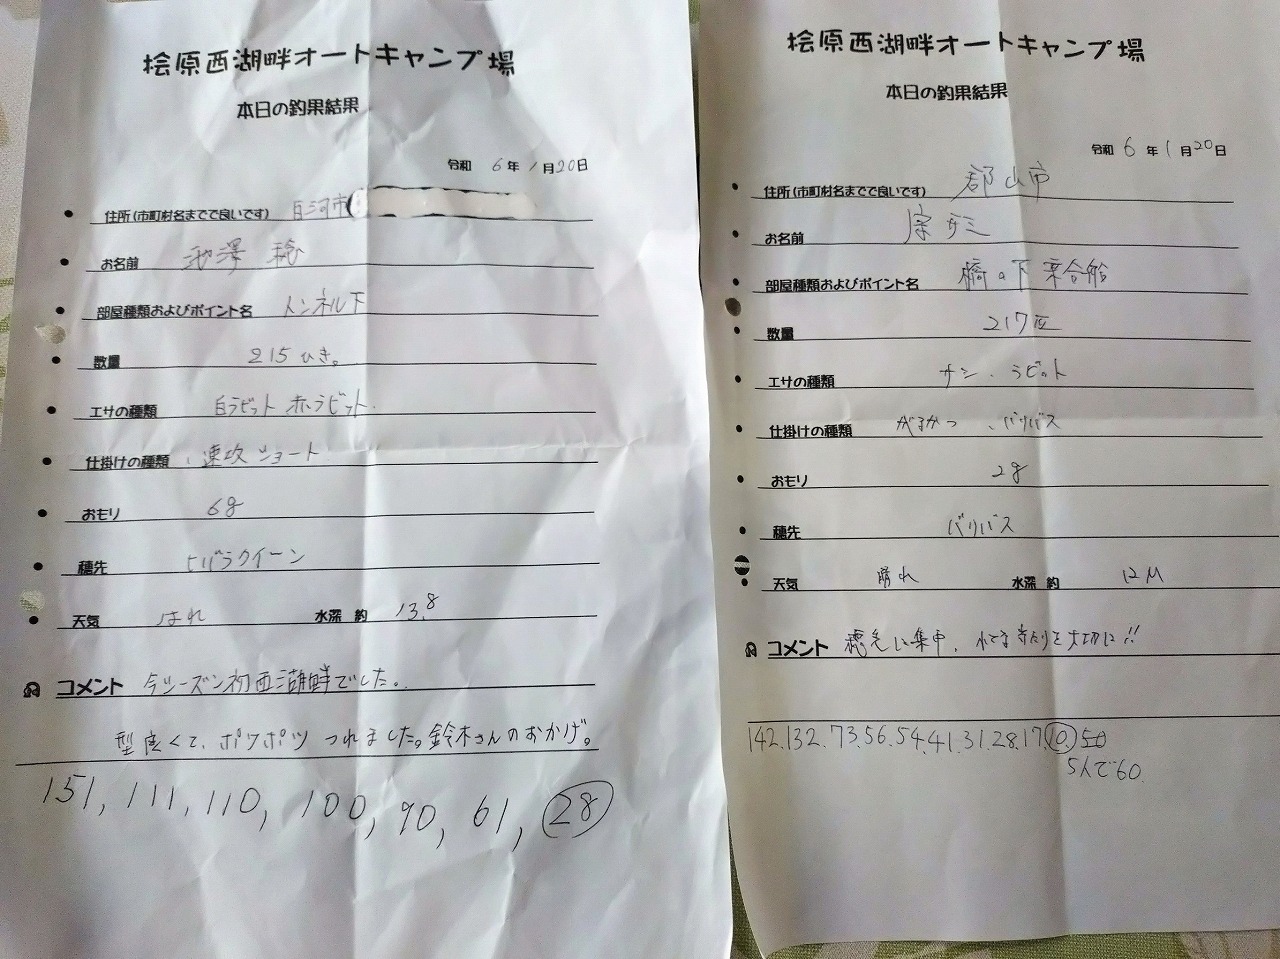 桧原西湖畔オートキャンプ場
本日の釣果結果
令和 6年 1月20日
住所(市町村名までで良いです) 白河市
お名前 池澤 稔
部屋種類およびポイント名 トンネル下
数量 215ひき。
エサの種類 白ラビット 赤ラビット.
仕掛けの種類 、速攻ショート
おもり 6g
穂先 ヒバラクイーン
天気 はれ 水深 約 13.8
コメント 今シーズン初西湖畔でした。
型良くて、ポツポツつれました。鈴木さんのおかげ。
151, 111, 110, 100, 90, 61, 28
桧原西湖畔オートキャンプ場
本日の釣果結果
令和 6年 1月20日
住所(市町村名までで良いです) 郡山市
お名前
部屋種類およびポイント名 橋の下 乗合船
数量 217匹
エサの種類 サシ、ラビット
仕掛けの種類 がまかつ、バリバス
おもり 2g
穂先 バリバス
天気 晴れ 水深 約 12M
コメント 穂先に集中、 大切に!!
142.132.73.56.54.41.31.28.17.10.50
5人で60.